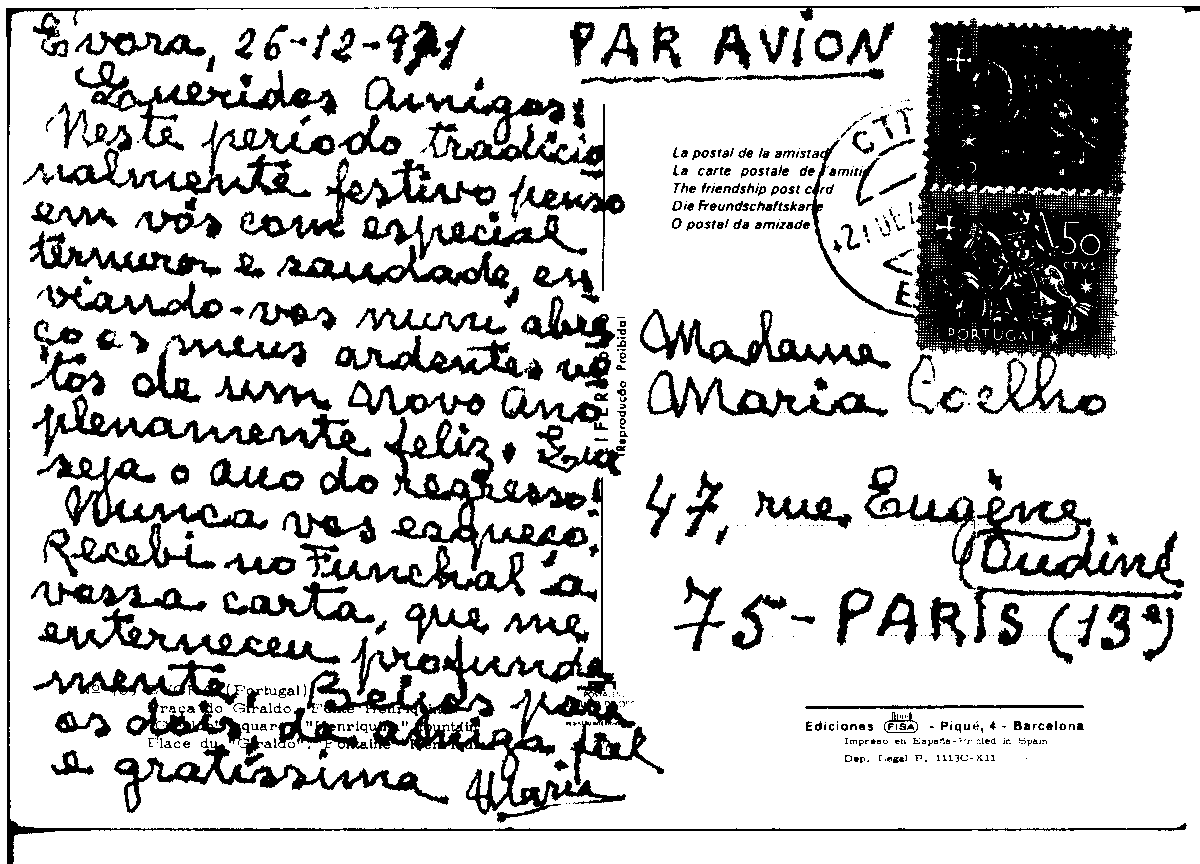 Évora, 26-12-971
Queridos Amigos:
Neste período tradicio
nalmente festivo penso
em vós com especial
ternura e saudade, en
viando-vos num abra
ço os meus ardentes vo
tos de um Novo Ano
plenamente feliz. Que
seja o ano do regresso!
Nunca vos esqueço.
Recebi no Funchal a
vossa carta, que me
enterneceu profunda
mente. Beijos para
os dois, da amiga fiel
e gratíssima Maria
(Portugal)
Place du "Giraldo".
(Reprodução Proibida)
PAR AVION
La postal de la amistad
La carte postale de l'amitié
The friendship post card
Die Freundschaftskarte
O postal da amizade
CTT
1$50
PORTUGAL
Madame
Maria Coelho
47, rue Eugène
Oudiné
75-PARIS (13e)
Ediciones FISA - Piqué, 4 - Barcelona
Impreso en España-Printed in Spain
Dep. Legal B. 1113C-XII